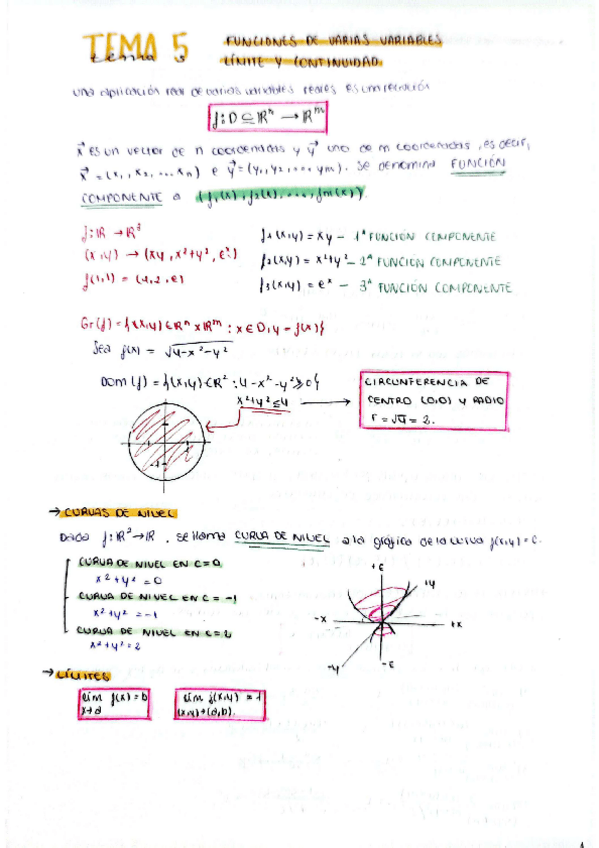 TEMA 5
tema 5
FUNCIONES DE VARIAS VARIABLES
LÍMITE Y CONTINUIDAD.
una aplicación real de varias variables reales es una relación
f: D ⊆ ℝⁿ → ℝᵐ
x⃗ es un vector de n coordenadas y y⃗ uno de m coordenadas, es decir,
x⃗ = (x₁, x₂, ... xₙ) e y⃗ = (y₁, y₂, ..., yₘ). Se denomina FUNCIÓN
COMPONENTE a (f₁(x), f₂(x), ..., fₘ(x)).
f: ℝ → ℝ³
(x,y) → (xy, x²+y², eˣ)
f(1,1) = (1, 2, e)
f₁(x,y) = xy – 1ª FUNCIÓN COMPONENTE
f₂(x,y) = x²+y² – 2ª FUNCIÓN COMPONENTE
f₃(x,y) = eˣ – 3ª FUNCIÓN COMPONENTE
Gr(f) = {(x,y) ∈ ℝⁿ x ℝᵐ : x ∈ D, y = f(x)}
Sea f(x) = √4-x²-y²
Dom(f) = {(x,y) ∈ ℝ² : 4-x²-y² ≥ 0}
x²+y² ≤ 4
CIRCUNFERENCIA DE
CENTRO (0,0) Y RADIO
r = √4 = 2.
→ CURVAS DE NIVEL
Dada f: ℝ² → ℝ, se llama CURVA DE NIVEL a la gráfica de la curva f(x,y) = C.
CURVA DE NIVEL EN C = 0
x²+y² = 0
CURVA DE NIVEL EN C = -1
x²+y² = -1
CURVA DE NIVEL EN C = 2
x²+y² = 2
+z
+y
-x
+x
-y
-z
→ LÍMITES
lim f(x) = b
x→a
lim f(x,y) = l
(x,y)→(a,b).